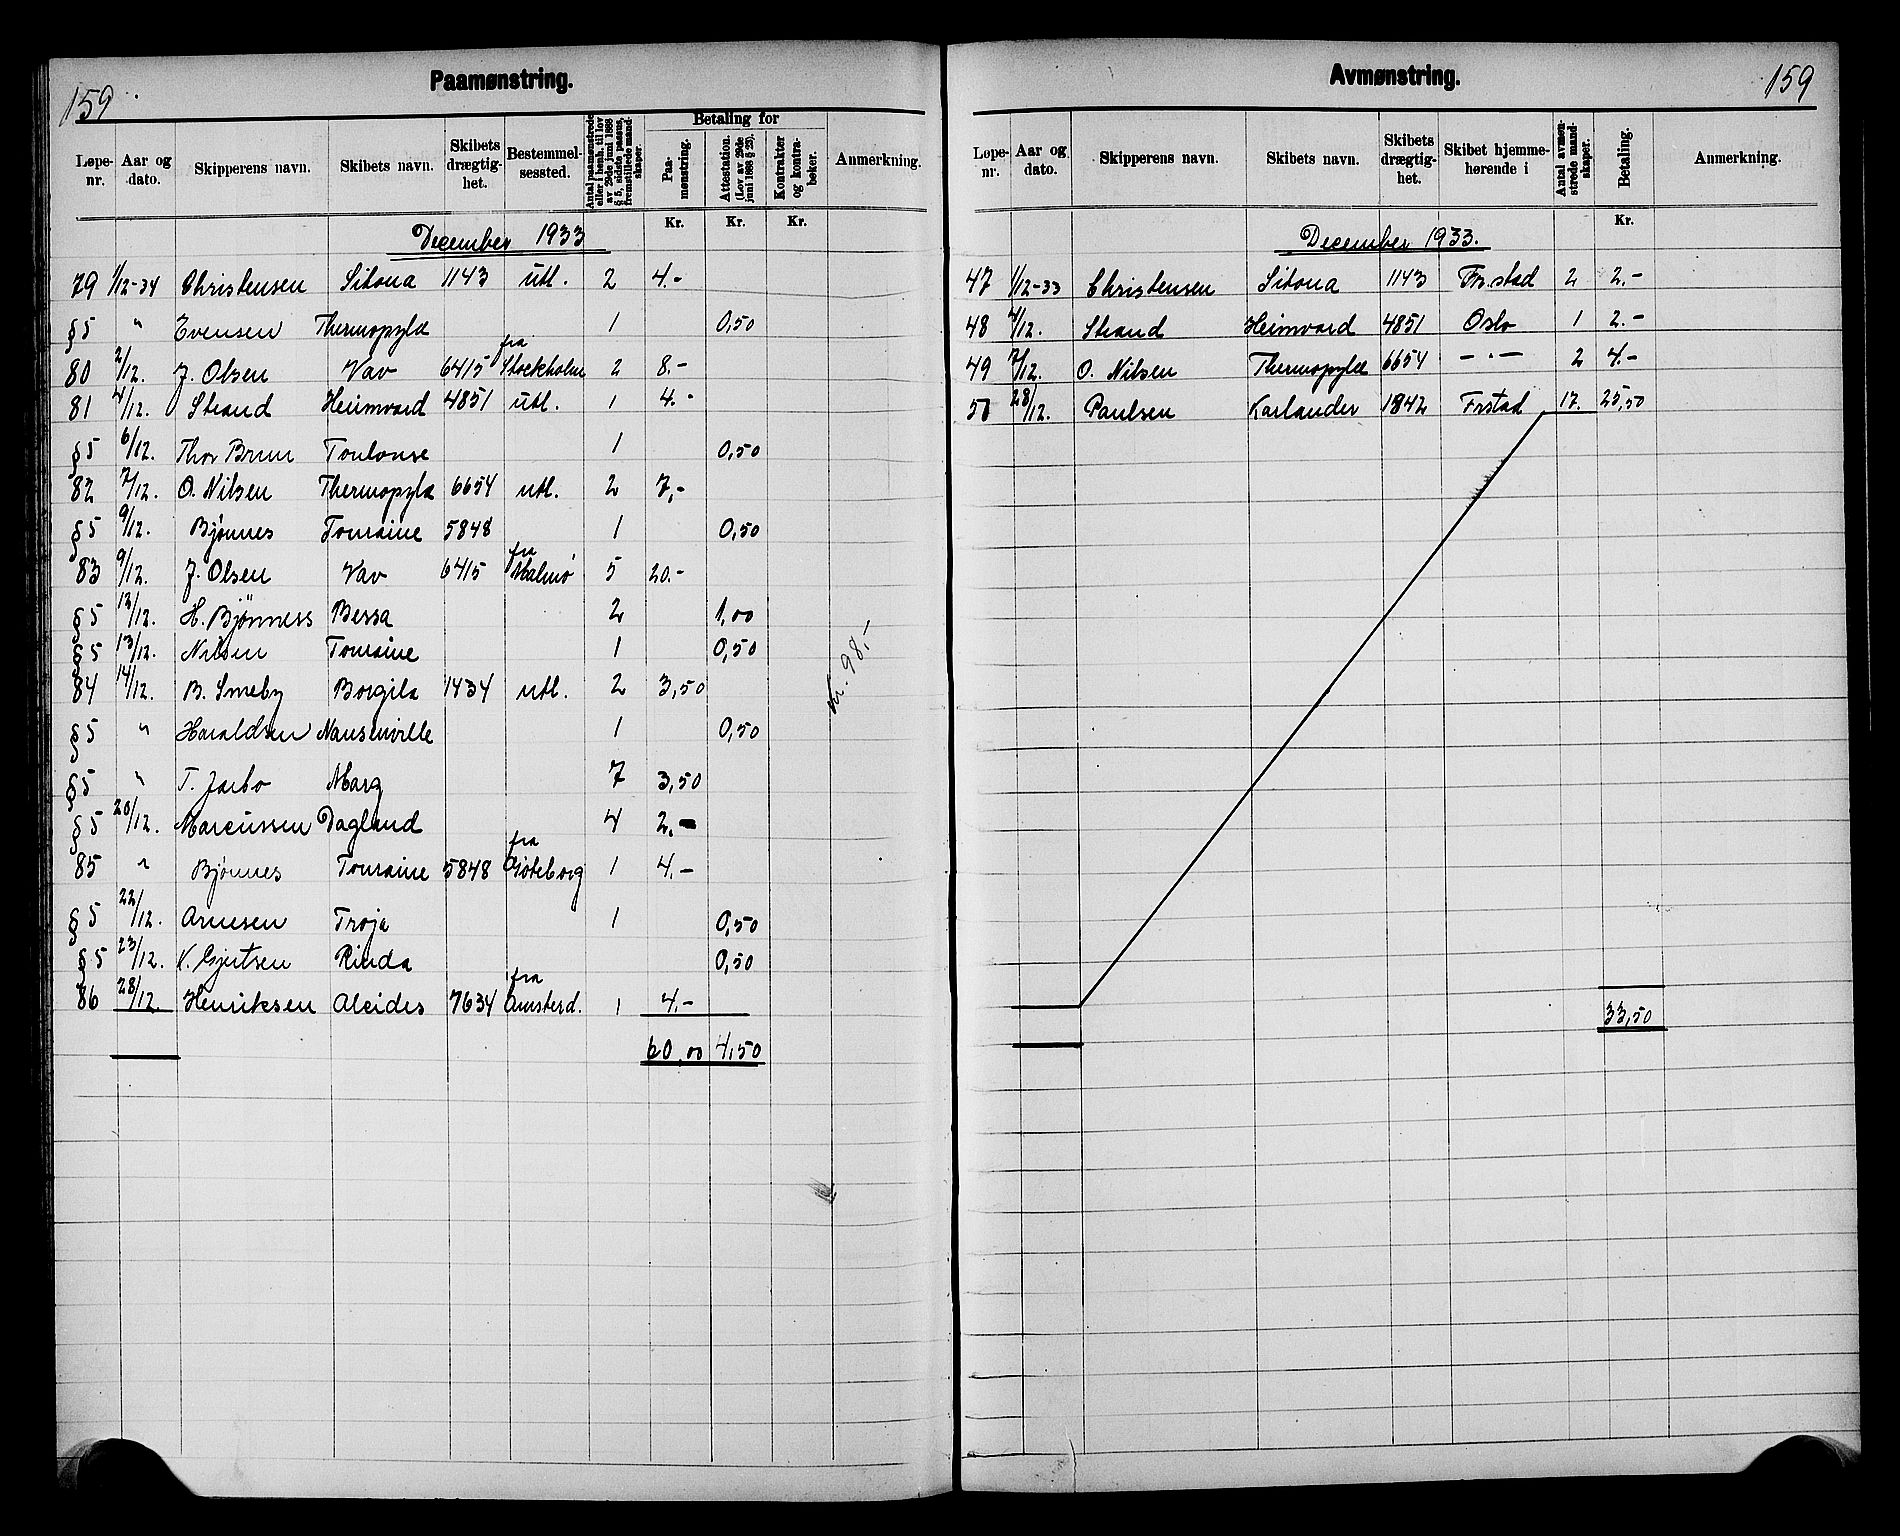 159
Paamønstring.
Løpe-nr. | Aar og dato. | Skipperens navn. | Skibets navn. | Skibets drægtig-het. | Bestemmel-sessted. | Antal paamønstrede eller i henh. til lov av 29de juni 1888 § 5, sidste passus, fremstillede mand-skaper. | Betaling for | Paa-mønstring. | Attestation. (Lov av 29de juni 1888 § 23). | Kontrakter og kontra-bøker. | Anmerkning.
Kr. | Kr. | Kr.
December 1933
79 1/12-34 Christensen Sitona 1143 utl. 2 4.-
§5 " Evensen Thermopylæ 1 0,50
80 2/12. J. Olsen Vav 6415 fra Stockholm 2 8.-
81 4/12. Strand Heimvard 4851 utl. 1 4.-
§5 6/12. Thor Brun Toulouse 1 0,50
82 7/12. O. Nilsen Thermopylæ 6654 utl. 2 7,-
§5 9/12. Bjønnes Touraine 5848 1 0,50
83 9/12. J. Olsen Vav 6415 fra Malmø 5 20.-
§5 13/12. H. Bjønness Bessa 2 1,00
§5 13/12. Nilsen Touraine 1 0,50
84 14/12. B. Smeby Borgila 1434 utl. 2 3,50
§5 " Haraldsen Nansenville 1 0,50
§5 " T. Jarbo Marg 7 3,50
§5 20/12. Marcussen Dagland 4 2.-
85 " Bjønnes Touraine 5848 fra Gøteborg 1 4.-
§5 22/12. Arnesen Troja 1 0,50
§5 23/12. K. Gjertsen Rinda 0,50
86 28/12. Henriksen Alcides 7634 fra Amsterd. 1 4.-
60,00 4,50
Kr. 98.-
Avmønstring.
159
Løpe-nr. | Aar og dato. | Skipperens navn. | Skibets navn. | Skibets drægtig-het. | Skibet hjemme-hørende i | Antal avmøn-strede mand-skaper. | Betaling. | Anmerkning.
Kr.
December 1933.
47 1/12-33 Christensen Sitona 1143 Fr.stad 2 2.-
48 4/12. Strand Heimvard 4851 Oslo 1 2.-
49 7/12. O. Nilsen Thermopylæ 6654 -"- 2 4.-
50 28/12. Paulsen Karlander 1842 Frstad 17. 25,50
33,50